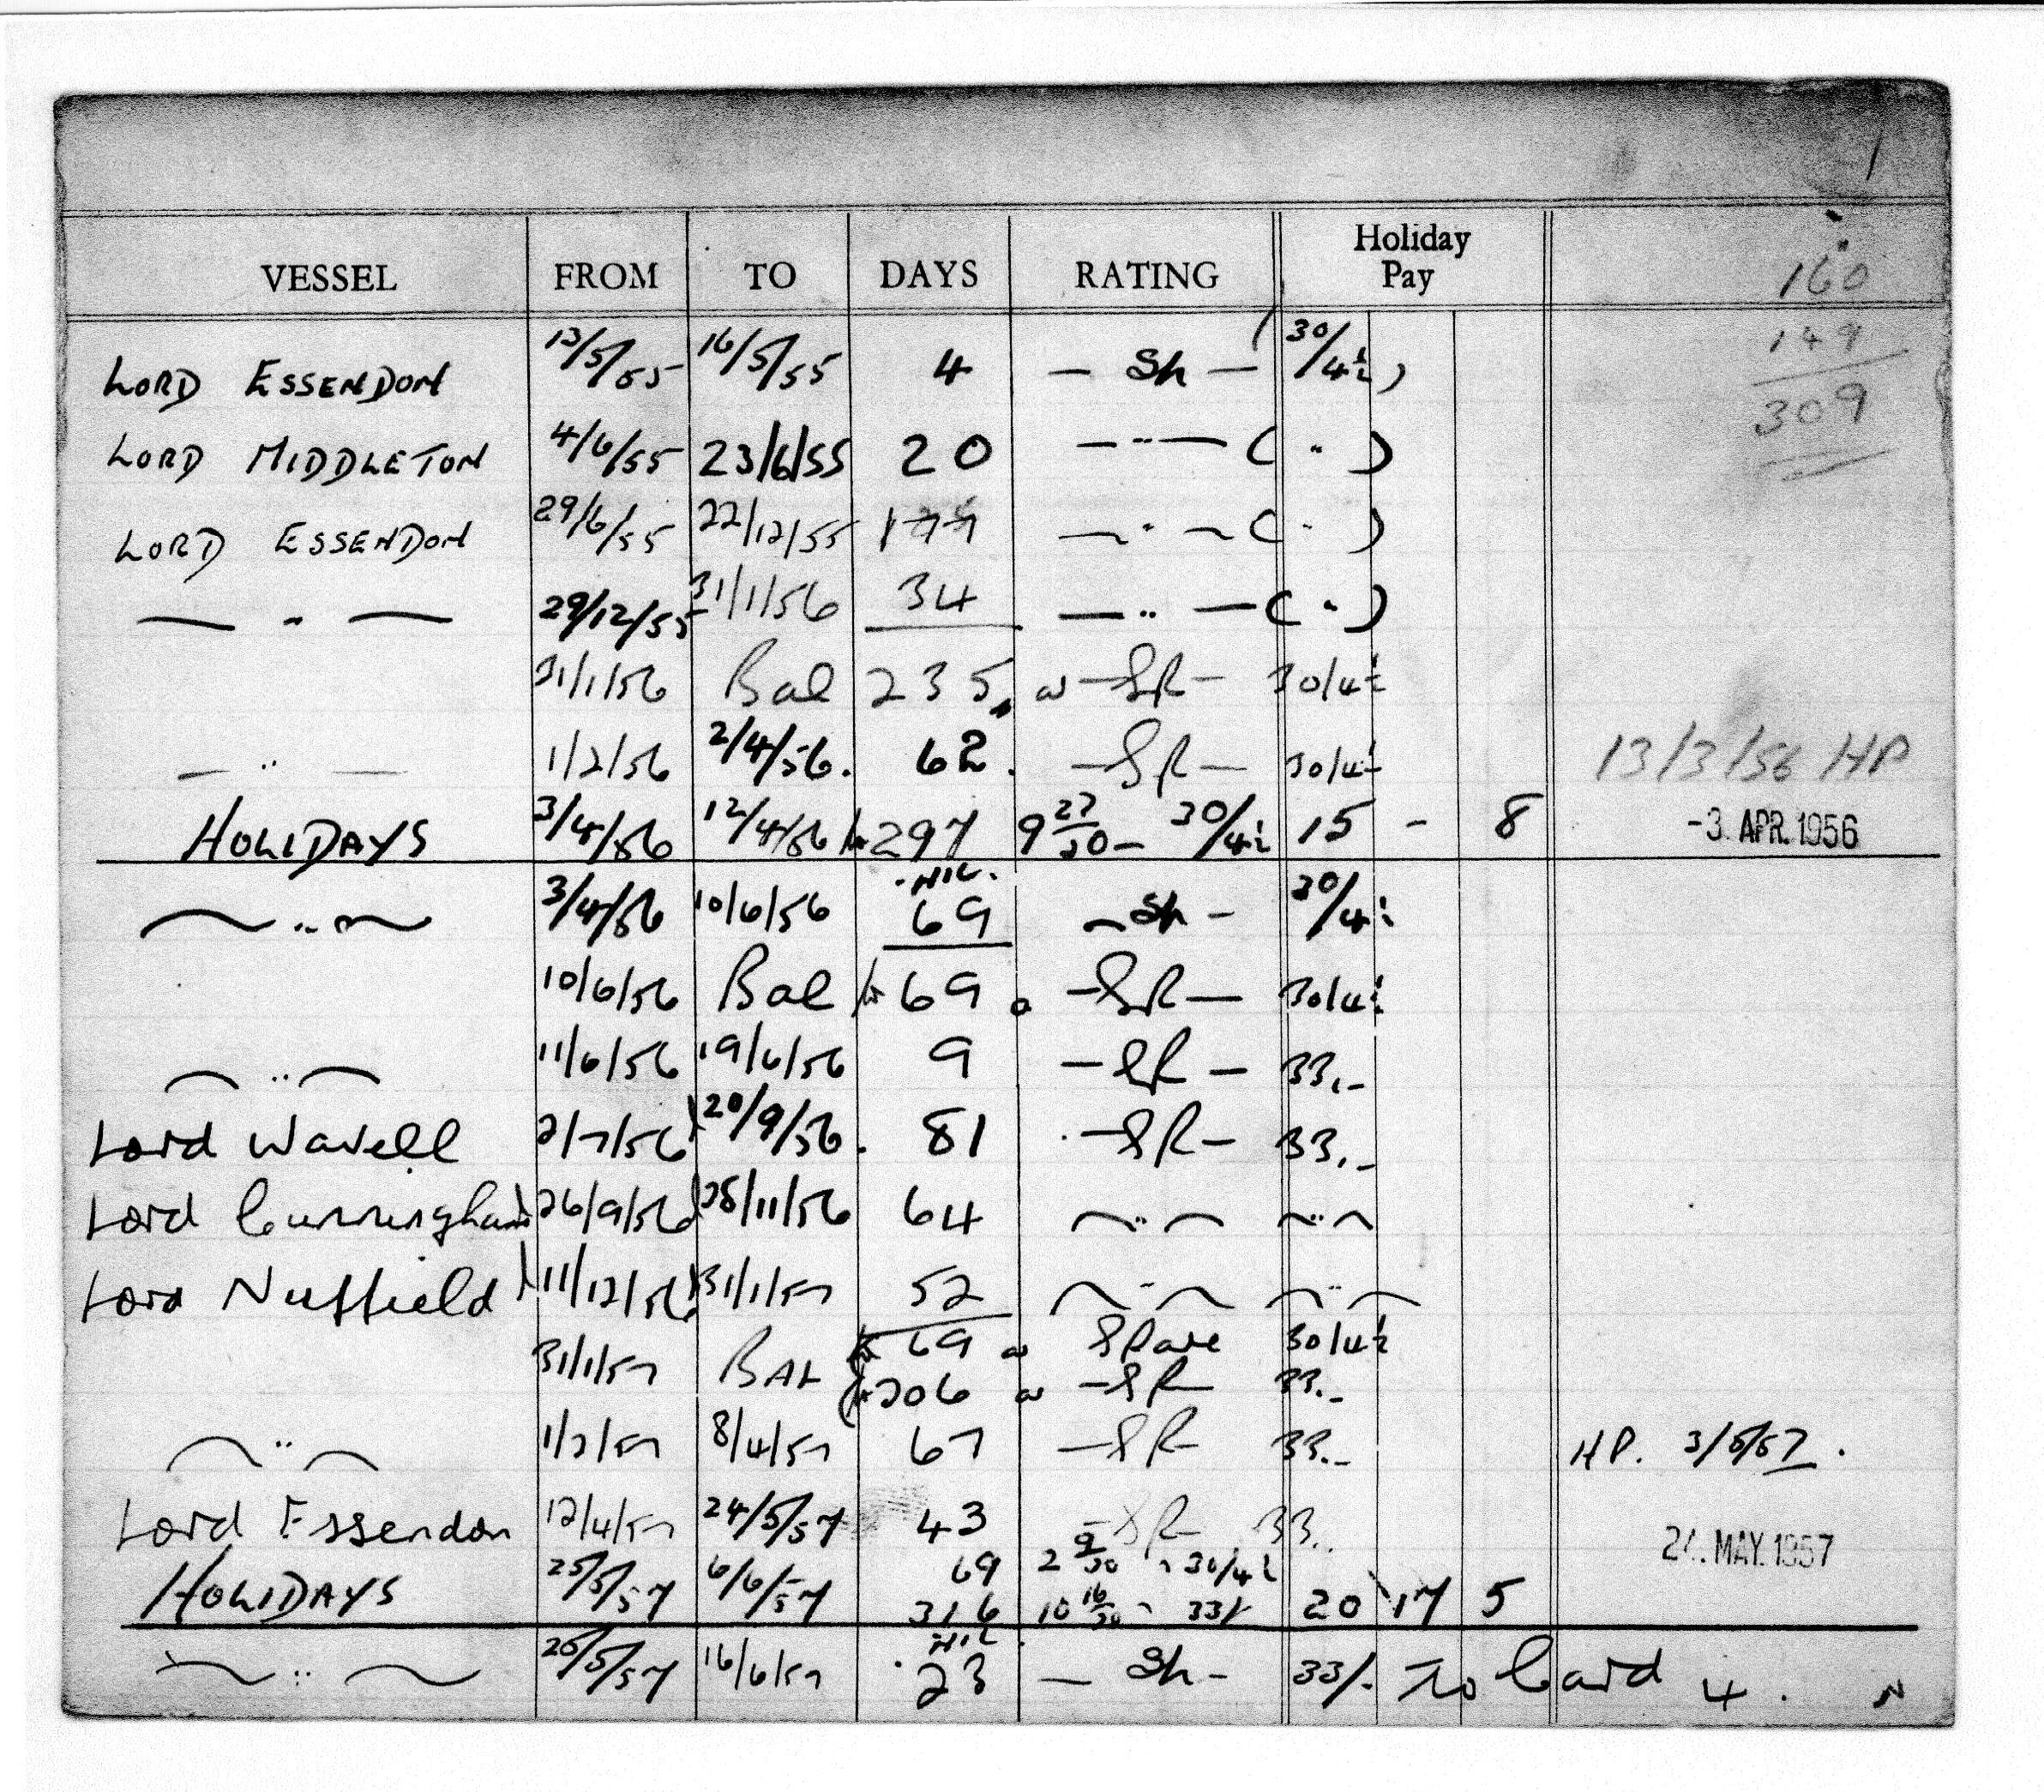 160
149
309
Holiday Pay
VESSEL FROM TO DAYS RATING
LORD ESSENDON 13/5/55 16/5/55 4 — Sh — (30/4½)
LORD MIDDLETON 4/6/55 23/6/55 20 — " — ( " )
LORD ESSENDON 29/6/55 22/12/55 177 — " — ( " )
— " — 29/12/55 31/1/56 34 — " — ( " )
31/1/56 Bal 235 — SR — 30/4½
— " — 1/2/56 2/4/56. 62. — SR — 30/4½ 13/3/56 HP
HOLIDAYS 3/4/56 12/4/56 297 9 27/30 — 30/4½ 15 - 8 -3. APR. 1956
. NIL .
— " — 3/4/56 10/6/56 69 — Sh — 30/4½
10/6/56 Bal 69 — SR — 30/4½
— " — 11/6/56 19/6/56 9 — SR — 33.-
Lord Wavell 2/7/56 20/9/56. 81 — SR — 33.-
Lord Cunningham 26/9/56 28/11/56 64 — " — — " —
Lord Nuffield 11/12/56 31/1/57 52 — " — — " —
69 Spare 30/4½
31/1/57 BAL 206 — SR 33.-
— " — 1/2/57 8/4/57 67 — SR 33.- HP. 3/5/57.
Lord Essendon 12/4/57 24/5/57 43 — SR — 33. 24. MAY. 1957
69 2 9/30 30/4½
HOLIDAYS 25/5/57 6/6/57 316 10 16/30 33/- 20 17 5
NIL .
— " — 25/5/57 16/6/57 23 — Sh — 33/- To Card 4 .